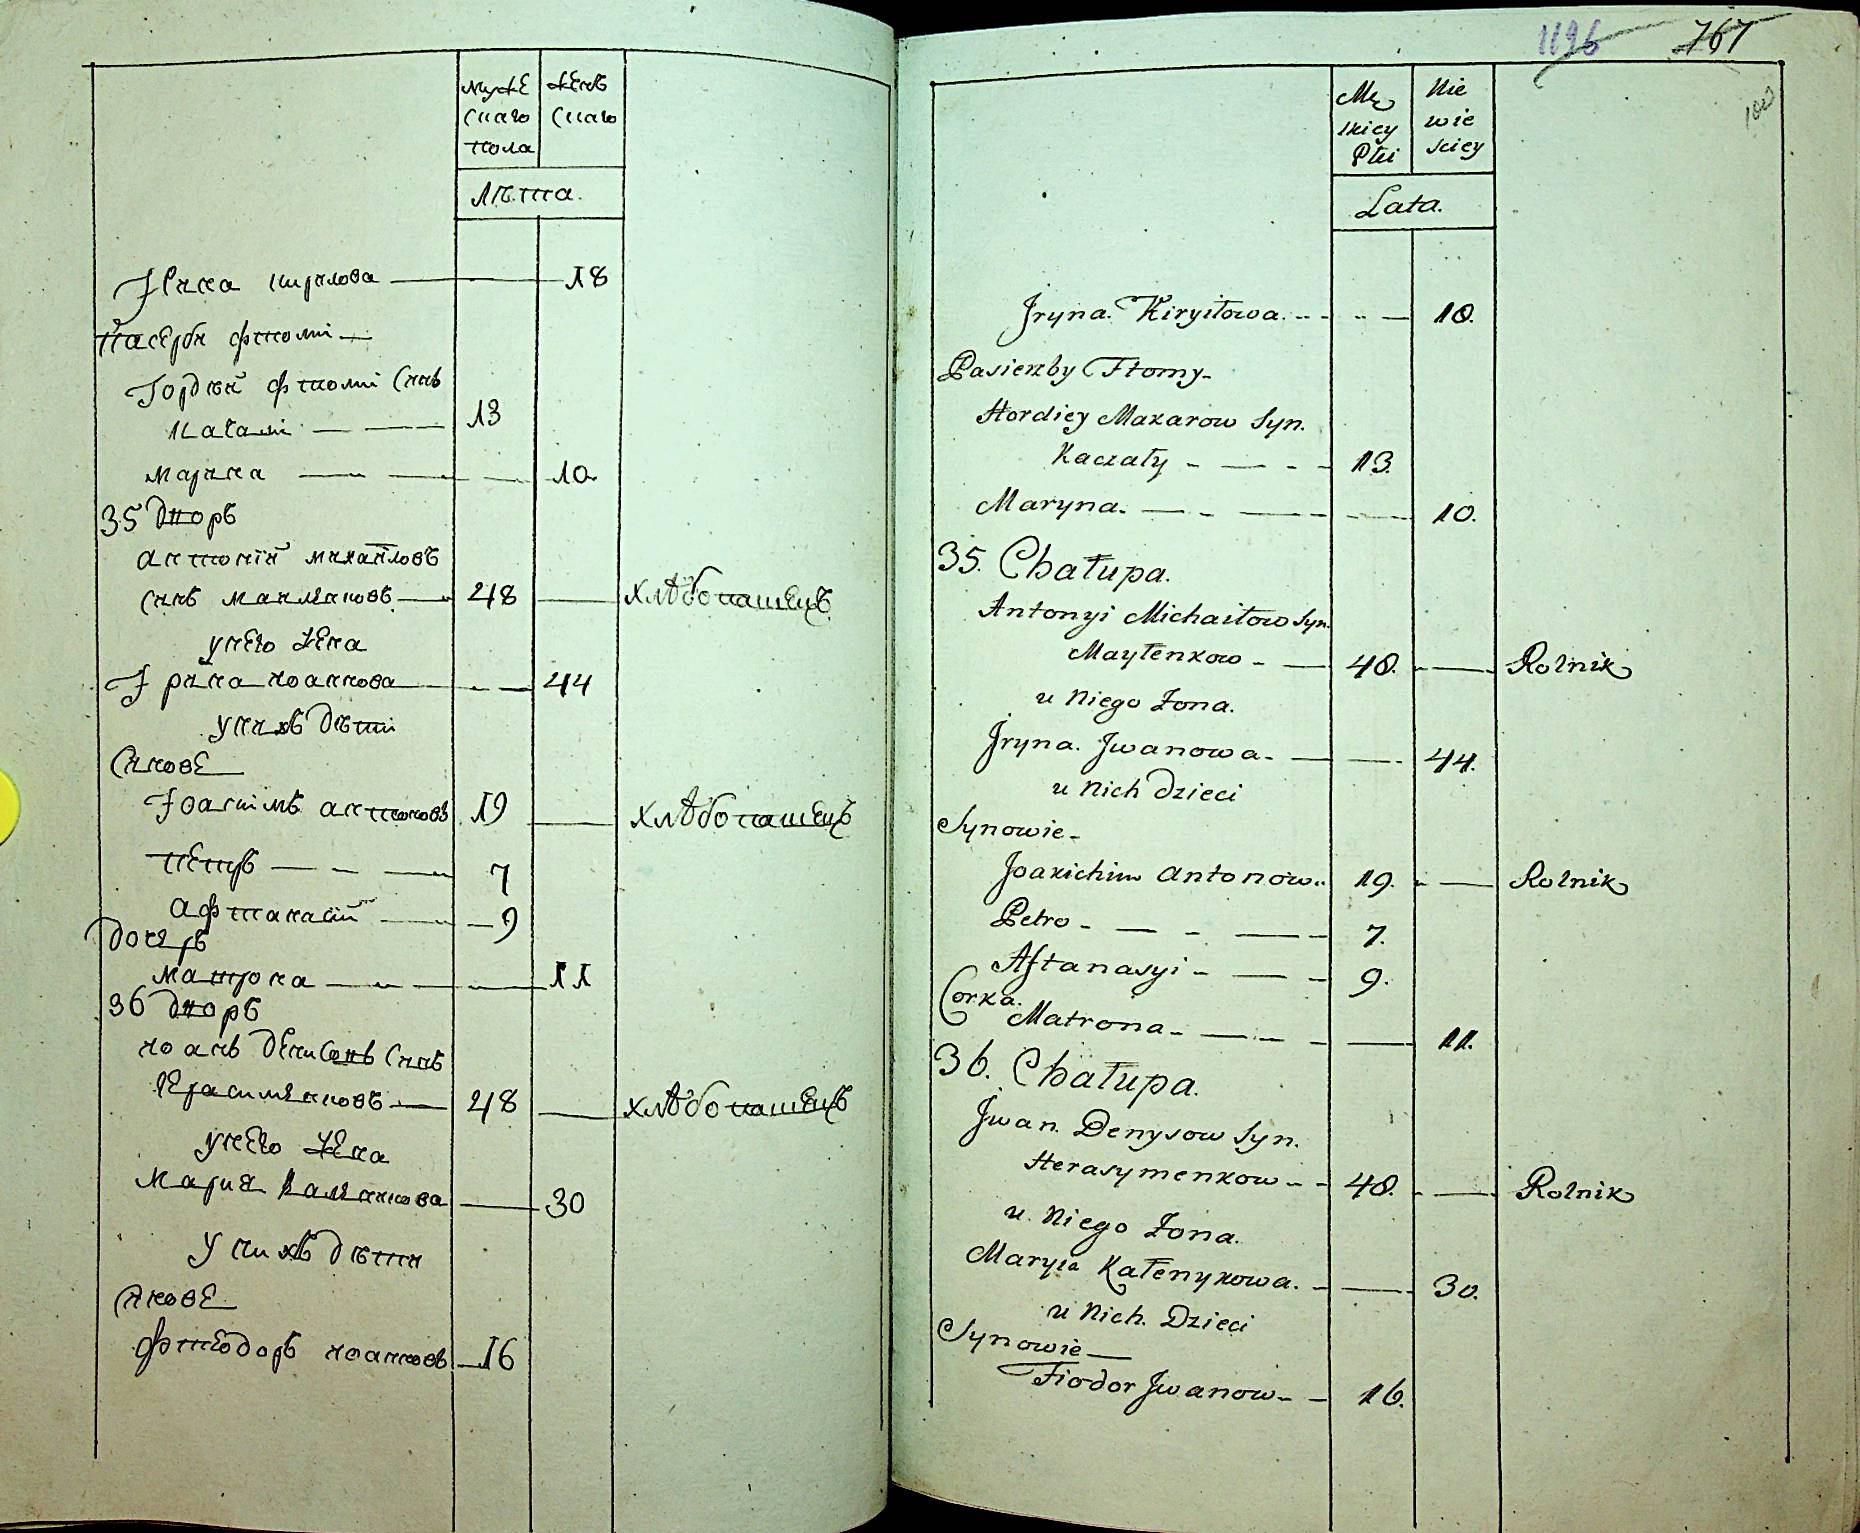 мужескаго пола
женскаго
лѣта.
Ірина кирилова — 18
пасерби фтомі —
Гордѣй фтомі синъ
качалі — 13
марина — 10.
35 дворъ
антоній михайловъ
синъ майленковъ — 48 — хлѣбопашецъ
унего жена
Ірина иоаннова — 44
унихъ дѣти
Синове
Іоакимъ антоновъ 19 — хлѣбопашецъ
петръ — 7
афтанасій — 9
дочеръ
матрона — 11
36 дворъ
иоанъ денисовъ синъ
герасименковъ — 48 — хлѣбопашецъ
унего жена
мария каленикова — 30
У нихъ дѣти
Синове
фтеодоръ иоанновъ — 16
1196 767
100
Mę
skiey
Płci
Nie
wie
sciey
Lata.
Jryna. Kiryłowa. — 18.
Pasierzby Ftomy -
Hordiey Makarow Syn.
Kaczały - — 13.
Maryna. — 10.
35. Chałupa.
Antonyi Michaiłow Syn.
Mayłenkow - — 48. — Rolnik
u Niego Żona.
Jryna. Jwanowa. — 44.
u Nich Dzieci
Synowie -
Joakichim Antonow. 19. — Rolnik
Petro - — 7.
Aftanasyi - — 9.
Corka.
Matrona - — 11.
36. Chałupa.
Jwan. Denysow Syn.
Herasymenkow - - 48. — Rolnik
u. Niego Żona.
Maryia Kałenykowa. - — 30.
u Nich. Dzieci
Synowie —
Fiodor Jwanow - — 16.